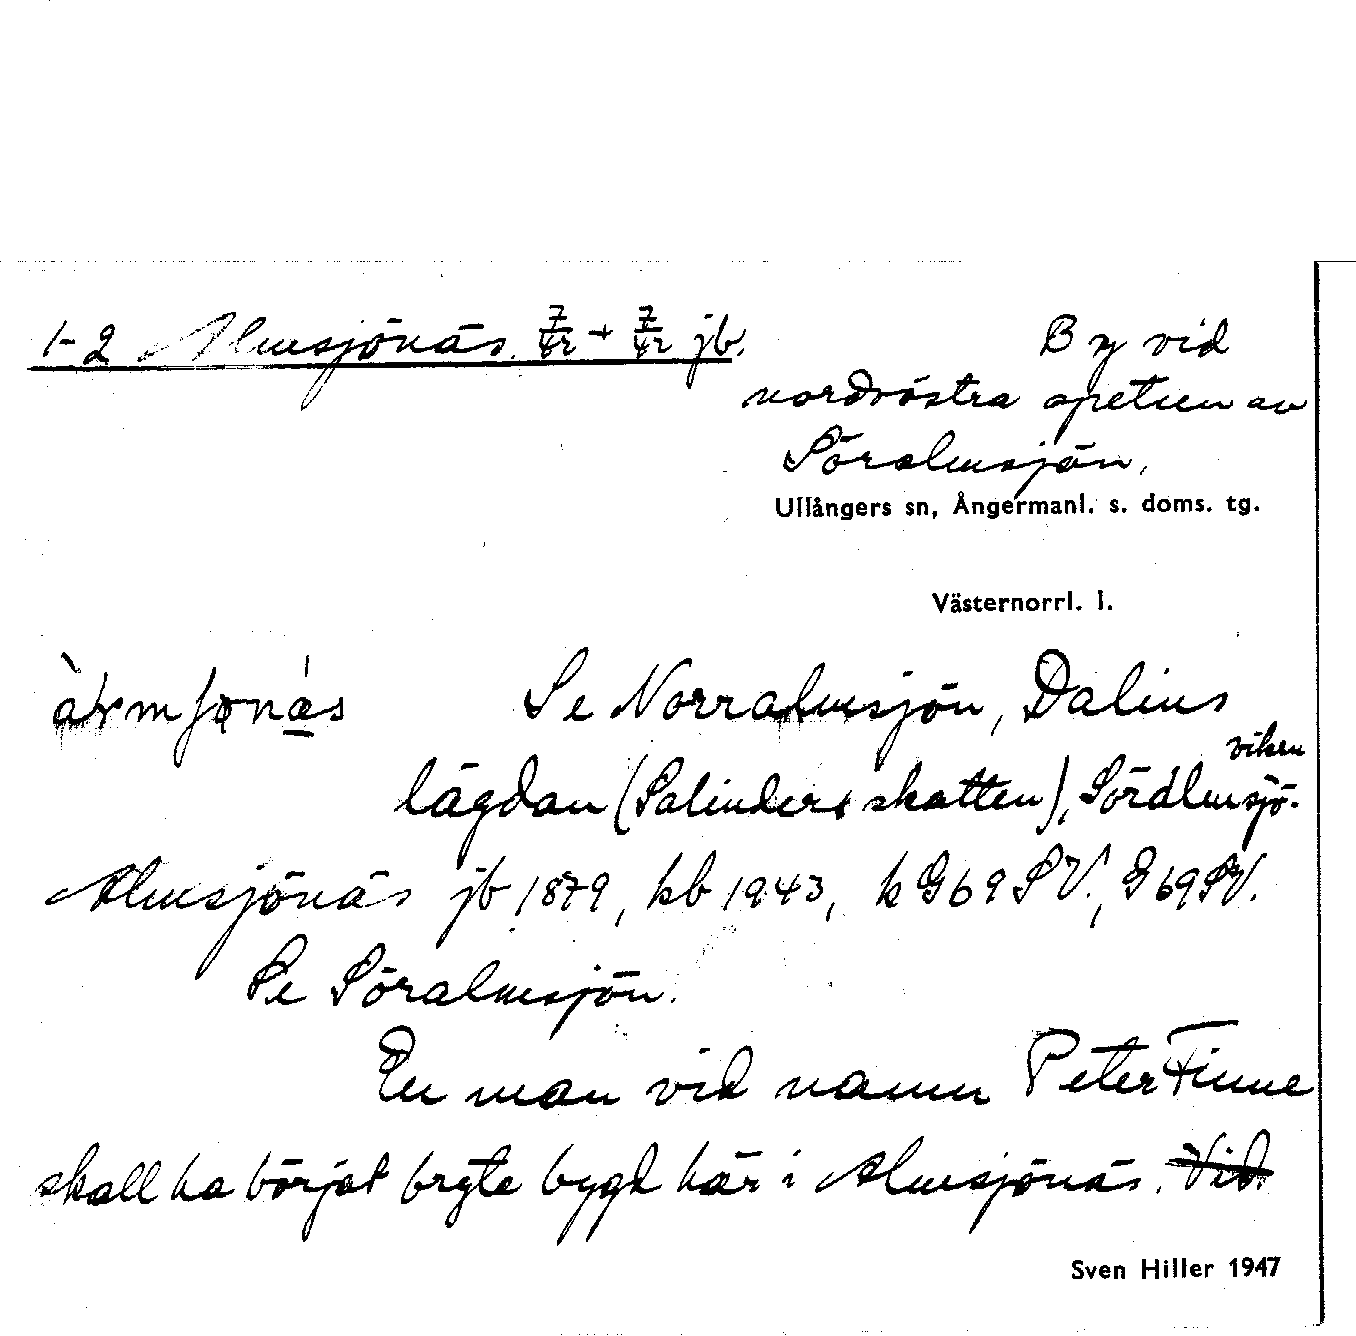 1-2 Almsjönäs. 7/42 + 7/42 jb.
By vid
nordvästra spetsen av
Söralmsjön.
Ullångers sn, Ångermanl. s. doms. tg.
Västernorrl. l.
Se Norralmsjön, Dalins
viken
lägdan (Salinders skatten), Söralmsjö-
Almsjönäs jb 1879, kb 1943, k G69SV., G69SV.
Se Söralmsjön.
En man vid namn Peter Finne
skall ha börjat bryta bygd här i Almsjönäs. Vid
Sven Hiller 1947